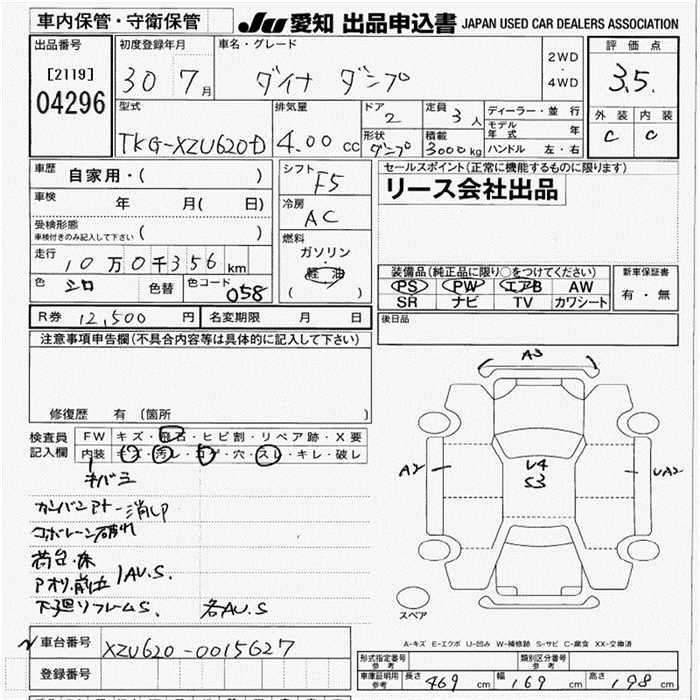 車内保管・守衛保管
JU 愛知 出品申込書 JAPAN USED CAR DEALERS ASSOCIATION
出品番号
[2119]
04296
初度登録年月
30 7月
車名・グレード
ダイナ ダンプ
2WD
・
4WD
評価点
3.5
外装 内装
C C
型式
TKG-XZU620D
排気量
4.00 cc
ドア
2
定員
3人
形状
ダンプ
積載
3000kg
ディーラー・並行
モデル年式 年
ハンドル 左・右
車歴 自家用・( )
車検 年 月( 日)
受検形態
車検付きのみ記入して下さい ( )
走行 10万0千356km
色 シロ 色替 色コード 058
シフト
F5
冷房
AC
燃料
ガソリン
・
軽油
( )
セールスポイント(正常に機能するものに限ります)
リース会社出品
装備品(純正品に限り○をつけてください)
PS PW エアB AW
SR ナビ TV カワシート
新車保証書
有・無
後日品
R券 12,500円 名変期限 月 日
注意事項申告欄(不具合内容等は具体的に記入して下さい)
修復歴 有 〔箇所 〕
検査員
記入欄
FW キズ・飛石・ヒビ割・リペア跡・X要
内装 キズ・汚レ・コゲ・穴・スレ・キレ・破レ
キバミ
カンバンアト一消し
コボレーン破れ
荷台・床
アオリ・前立 AU.S.
下廻リフレームS. 各AU.S
A3
A2
U4
S3
UA2
スペア
A-キズ E-エクボ U-凹み W-補修跡 S-サビ C-腐食 XX-交換済
車台番号 XZU620-0015627
登録番号
形式指定番号
参考
類別区分番号
参考
車庫証明用
参考
長さ 469 cm 幅 169 cm 高さ 198 cm